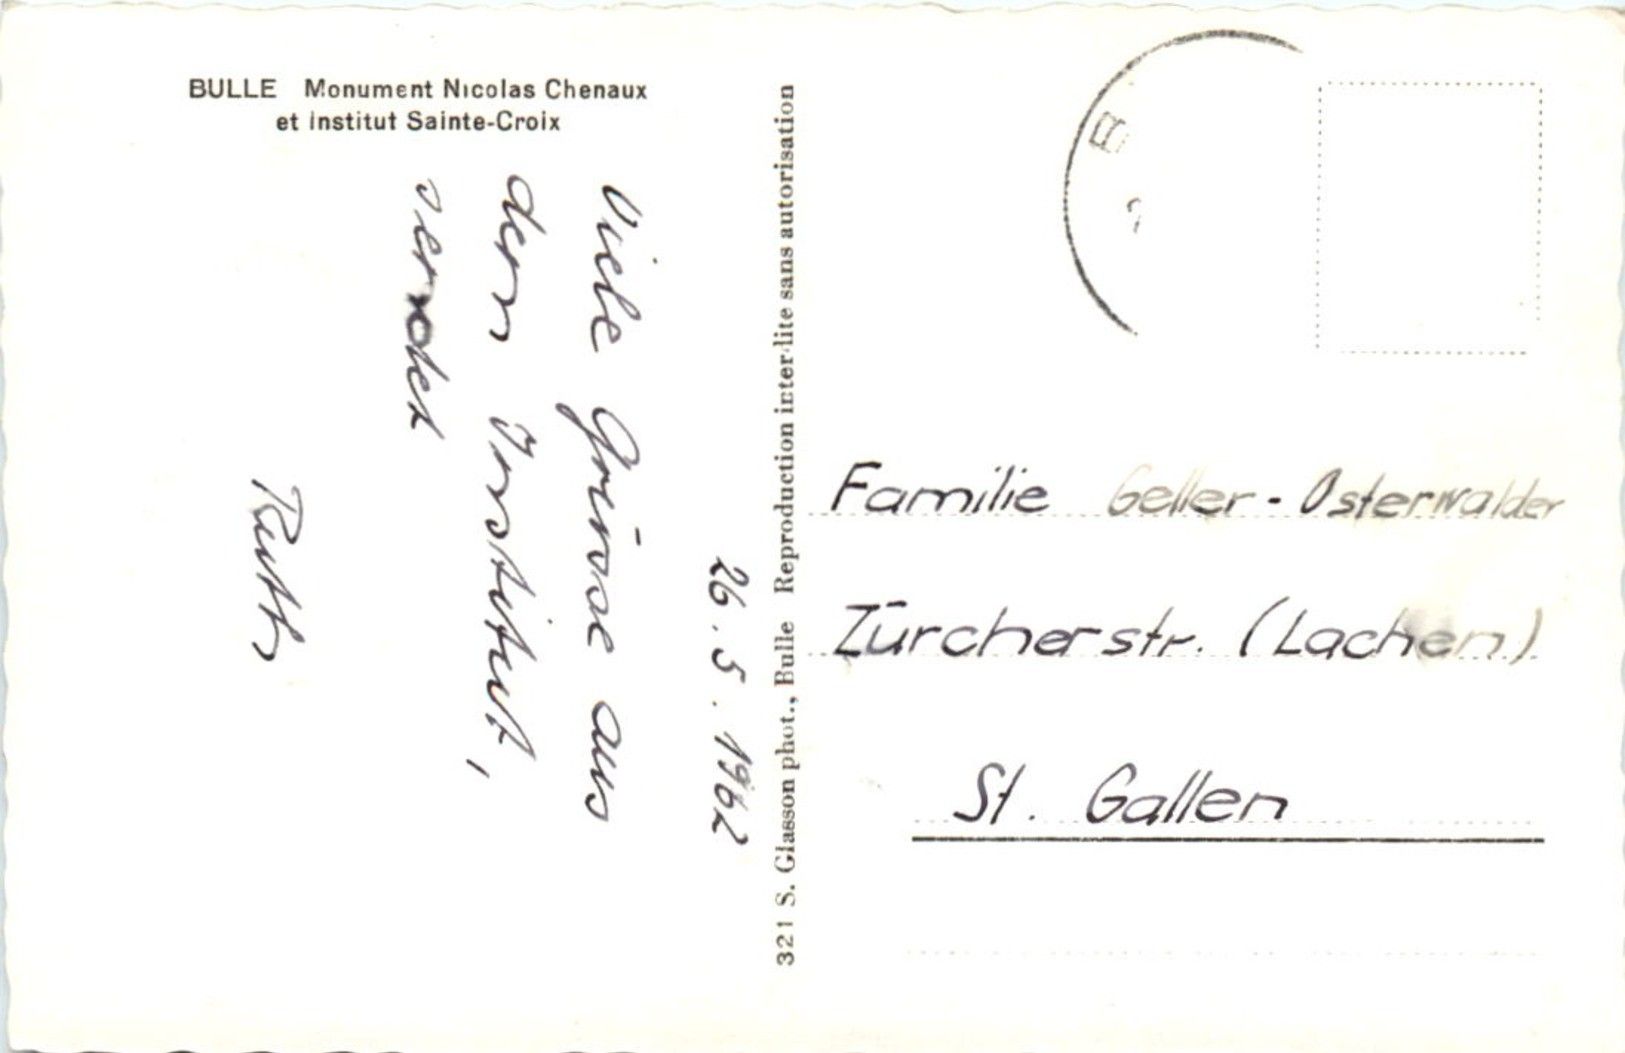 BULLE Monument Nicolas Chenaux
et Institut Sainte-Croix
26.5.1962
Viele Grüsse aus
dem Institut,
sendet
Ruth
321 S. Glasson phot., Bulle Reproduction interdite sans autorisation
Familie Geller-Osterwalder
Zürcherstr. (Lachen)
St. Gallen